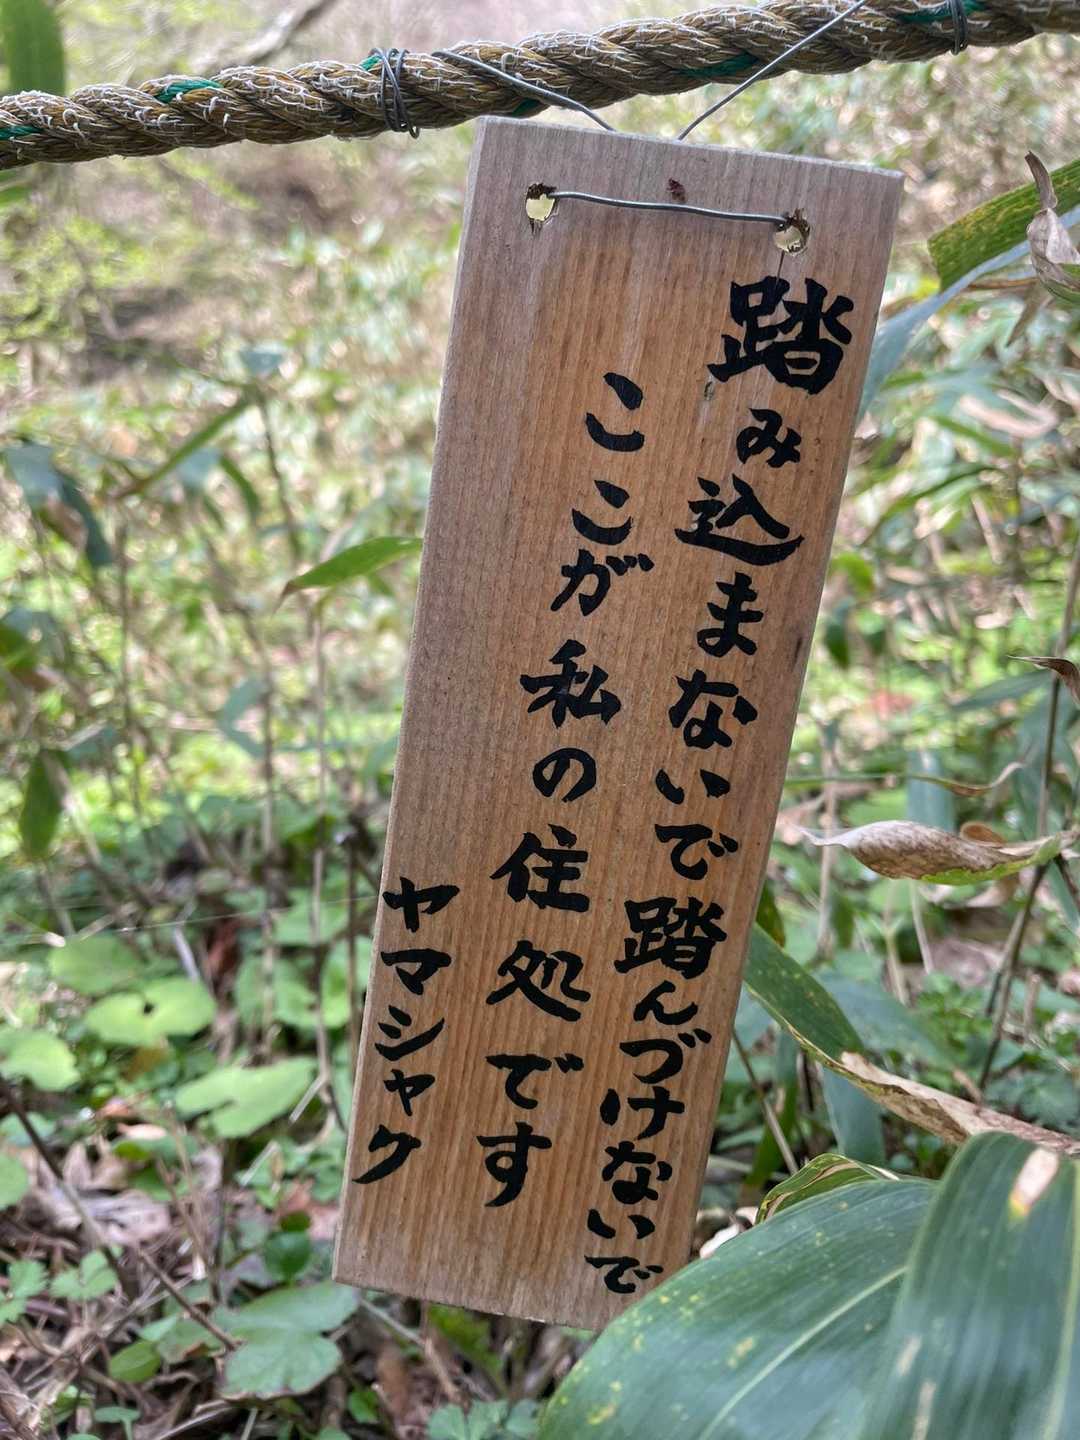 踏み込まないで踏んづけないで
ここが私の住処です
ヤマシャク